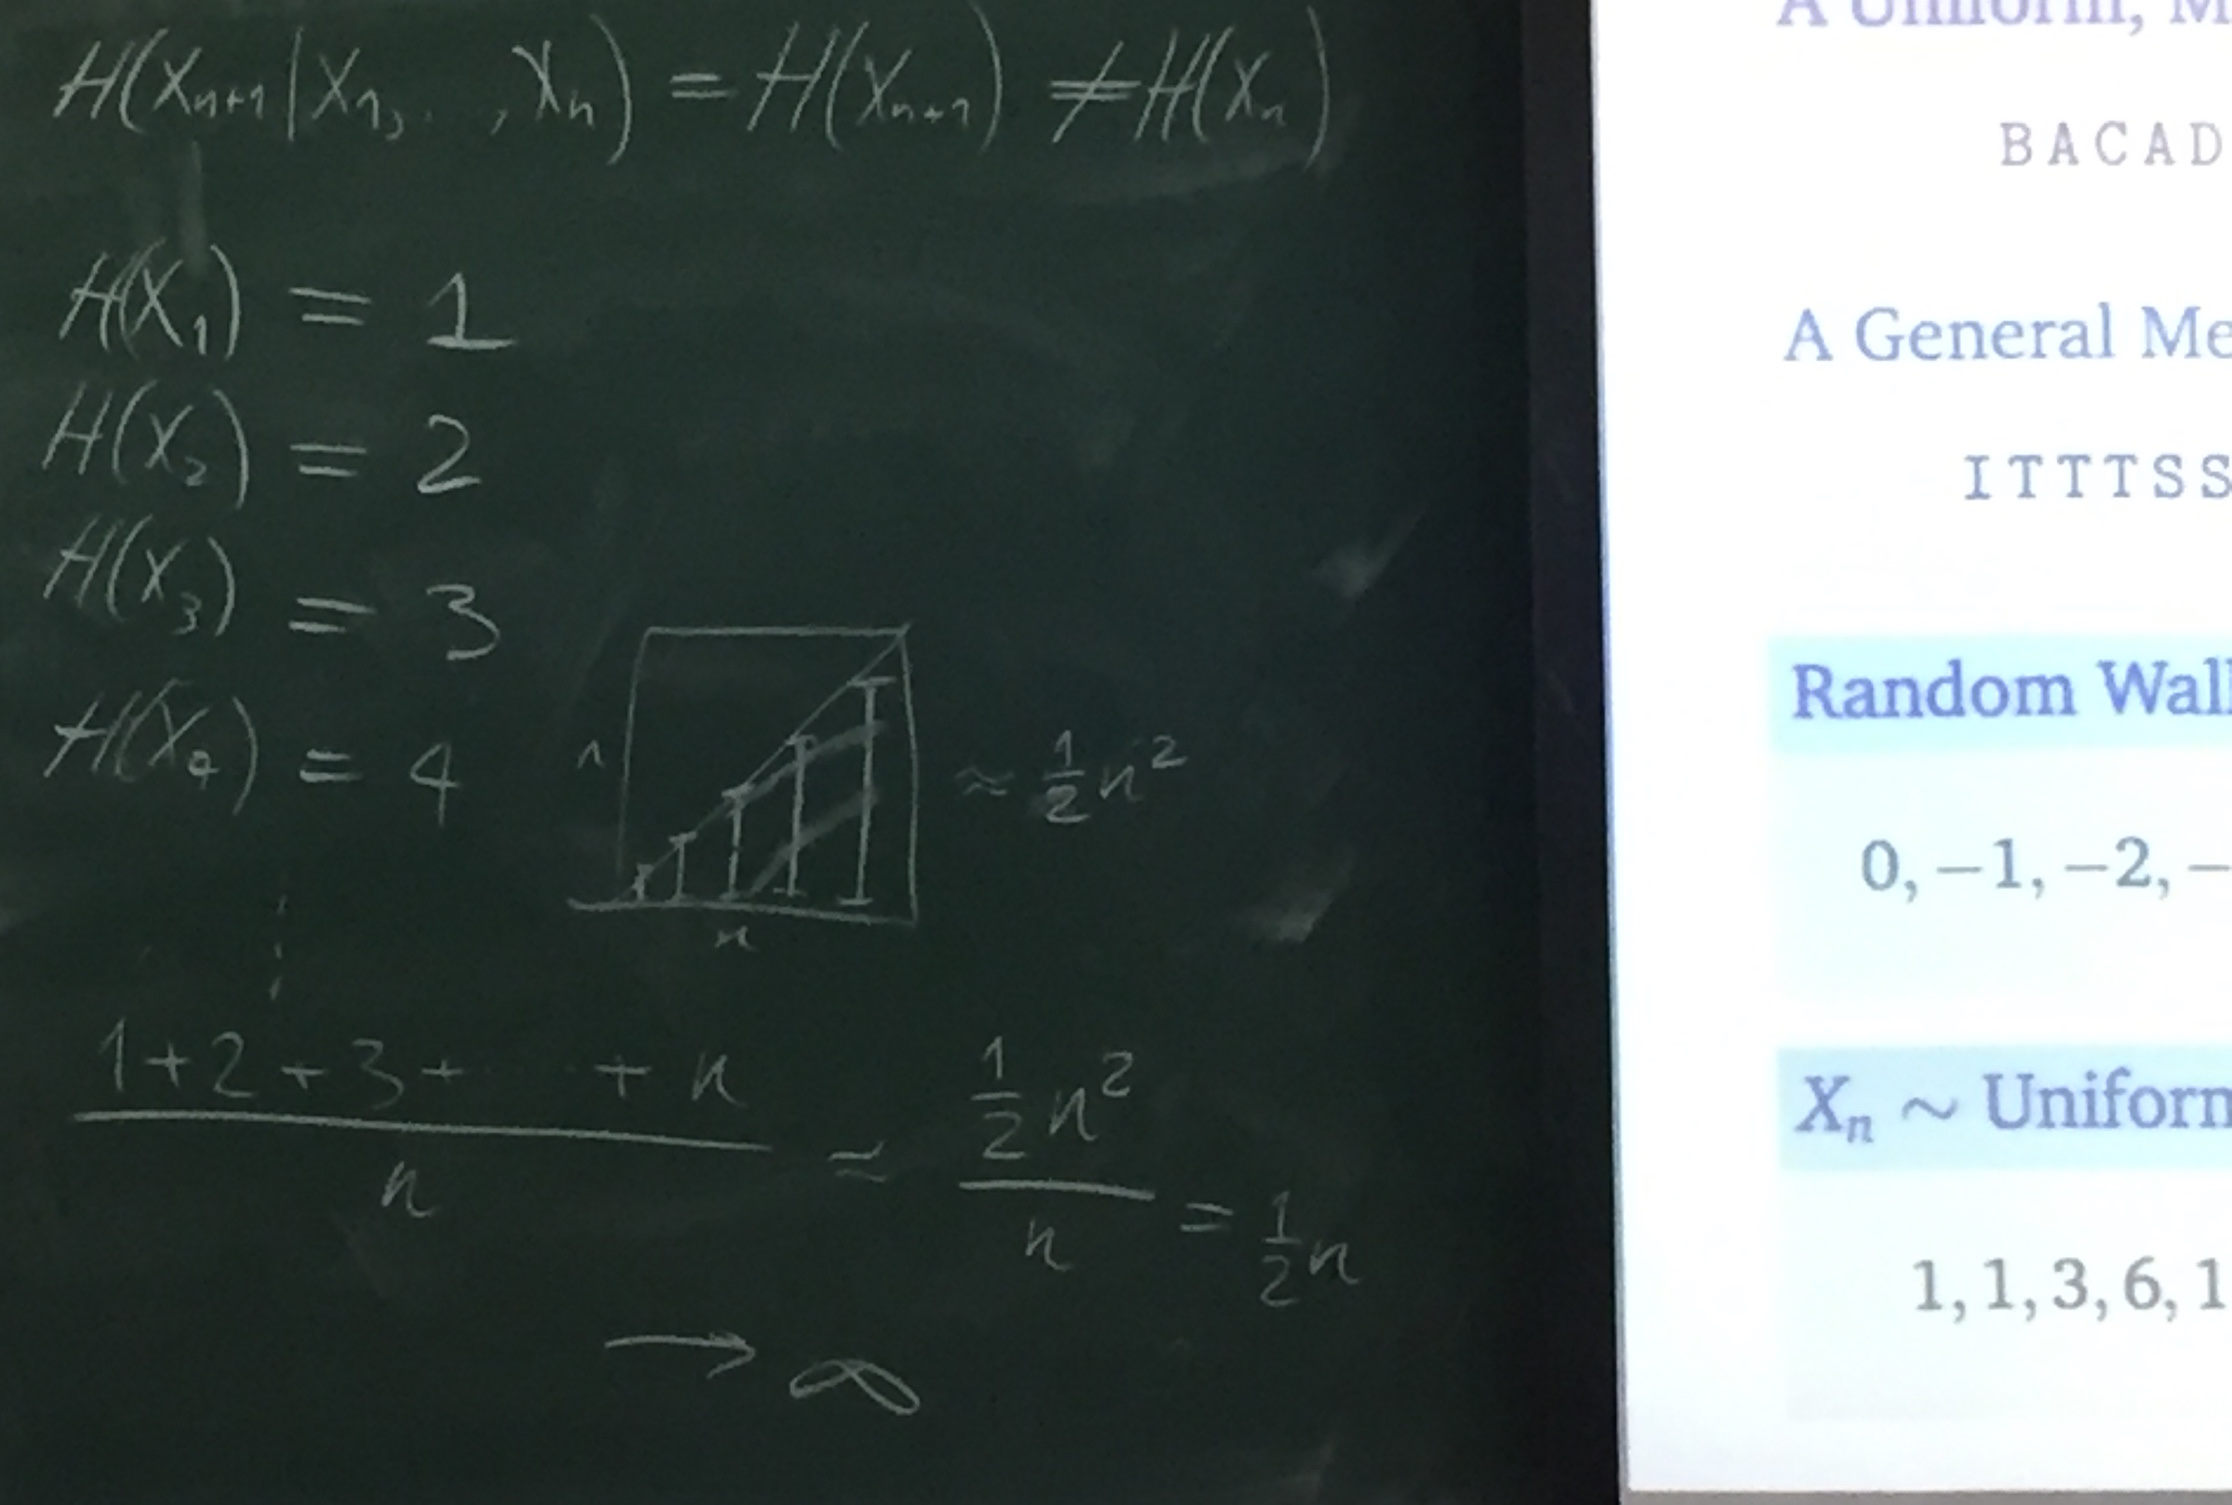 H(X_{n+1}|X_1, . . , X_n) = H(X_{n+1}) ≠ H(X_n)
H(X_1) = 1
H(X_2) = 2
H(X_3) = 3
H(X_4) = 4
n
≈ 1/2 n^2
(1+2+3+ . . . + n)/n ≈ (1/2 n^2)/n = 1/2 n
→ ∞
A Uniform, M
BACAD
A General Me
ITTTSS
Random Wal
0, −1, −2, −
X_n ~ Uniform
1, 1, 3, 6, 1